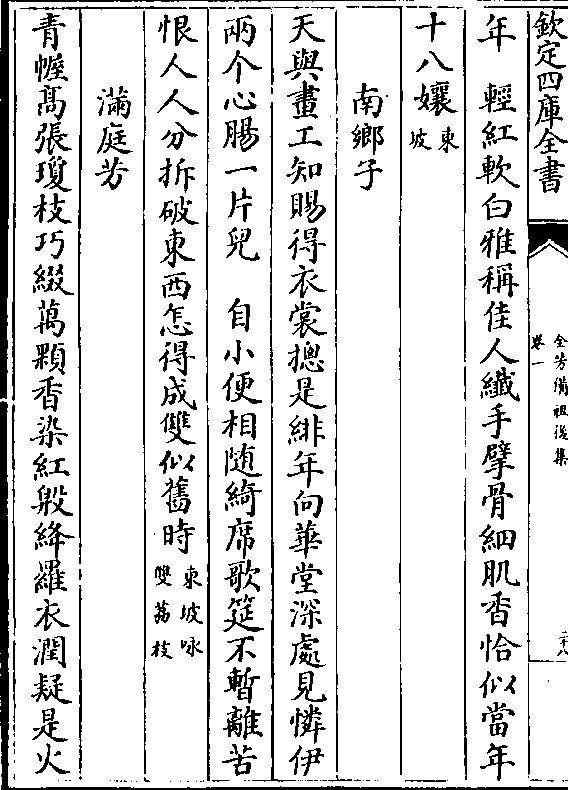 欽定四庫全書
全芳備祖後集
卷一
年　輕紅軟白雅稱佳人纖手擘骨細肌香恰似當年
十八孃東坡
南鄉子
天與畫工知賜得衣裳揔是緋年向華堂深處見憐伊
兩个心腸一片兒　自小便相随綺席歌筵不暫離苦
恨人人分拆破東西怎得成雙似舊時東坡咏雙荔枝
滿庭芳
青幄髙張瓊枝巧綴萬顆香染紅殷絳羅衣潤疑是火